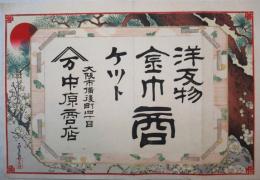 洋反物
金巾商
ケット
大阪市備後町四丁目
中原商店